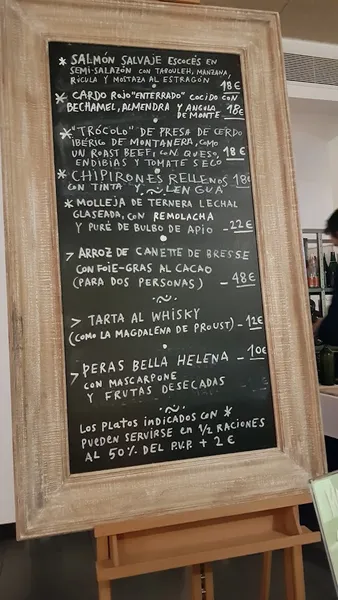 * SALMÓN SALVAJE ESCOCÉS EN
SEMI-SALAZÓN CON TABOULEH, MANZANA,
RÚCULA Y MOSTAZA AL ESTRAGÓN
18€
* CARDO ROJO "ENTERRADO" COCIDO CON
BECHAMEL, ALMENDRA Y ANGULA
DE MONTE - 18€
* "TRÓCOLO" DE PRESA DE CERDO
IBÉRICO DE MONTANERA, COMO
UN ROAST BEEF, CON QUESO, 18€
ENDIBIAS Y TOMATE SECO
* CHIPIRONES RELLENOS 18€
CON TINTA Y LENGUA
* MOLLEJA DE TERNERA LECHAL
GLASEADA, CON REMOLACHA
Y PURÉ DE BULBO DE APIO - 22€
> ARROZ DE CANETTE DE BRESSE
CON FOIE-GRAS AL CACAO
(PARA DOS PERSONAS) - 48€
> TARTA AL WHISKY
(COMO LA MAGDALENA DE PROUST) - 12€
> PERAS BELLA HELENA - 10€
CON MASCARPONE
Y FRUTAS DESECADAS
LOS PLATOS INDICADOS CON *
PUEDEN SERVIRSE EN 1/2 RACIONES
AL 50% DEL P.V.P + 2€